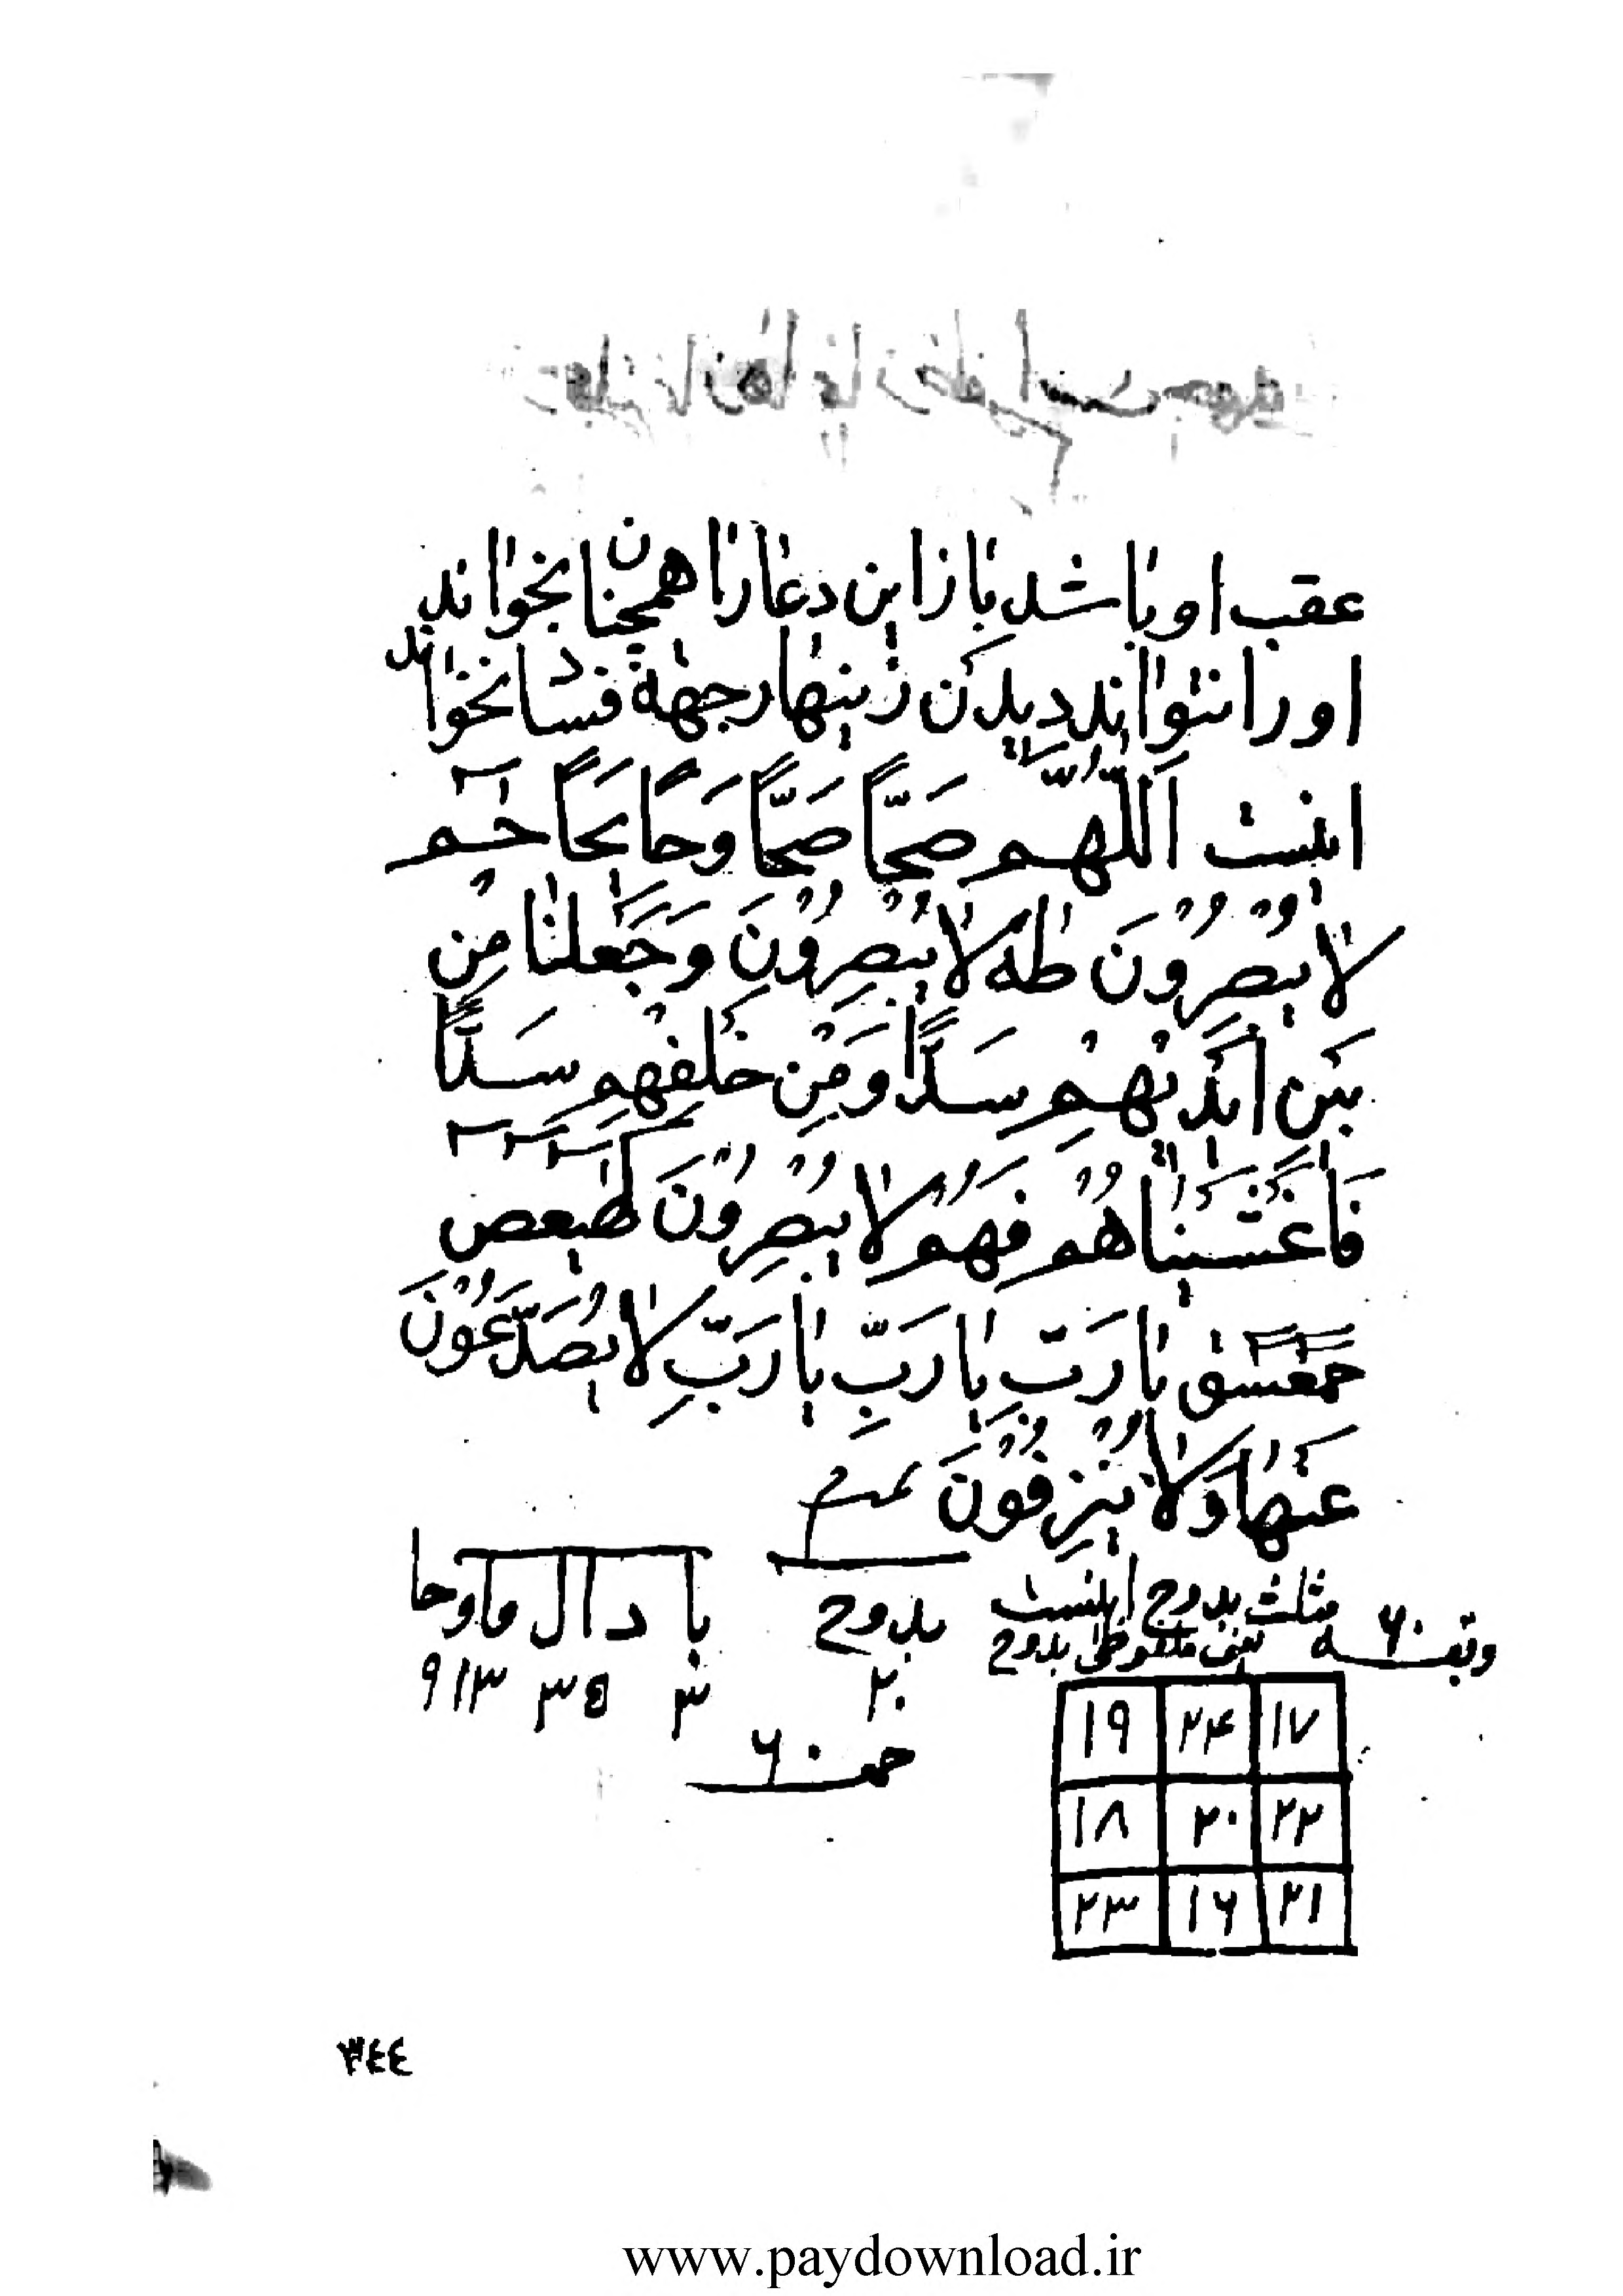 عقب او باشد باز این دعا را همچنان بخواند
او را نتوانند دیدن زینهار جهة فساد نخواند
اینست اَللّهُمَّ صَحّاً صَحّاً وَحاً یَحاً حٰم
لا یُبْصِرُونَ طٰهٰ لا یُبْصِرُونَ وَجَعَلْنا مِنْ
بَیْنِ اَیْدیهِمْ سَدّاً وَمِنْ خَلْفِهِمْ سَدّاً
فَاَغْشَیْناهُمْ فَهُمْ لا یُبْصِرُونَ کهیعص
حمعسق یا رَبِّ یا رَبِّ یا رَبِّ لا یُصَدَّعُونَ
عَنْها وَلا یُنْزِفُونَ
مثلث بدوح اینست
یعنی ملفوظی بدوح
وفقه ۶۰
بدوح با دال واو حا
۲۰ ۳ ۳۵ ۱۳ ۹
جمع ۶۰
۱۹ ۲۴ ۱۷
۱۸ ۲۰ ۲۲
۲۳ ۱۶ ۲۱
٣٤٤
www.paydownload.ir